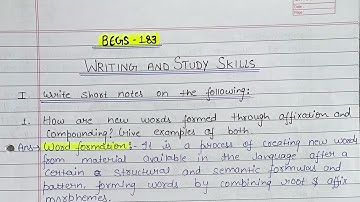 BEGS - 183
WRITING AND STUDY SKILLS
I Write short notes on the following:
1. How are new words formed through affixation and
compounding? Give examples of both.
Ans:- Word formation:- It is a process of creating new words
from material available in the language after a
certain structural and semantic formulas and
pattern, forming words by combining root & affix
morphemes.